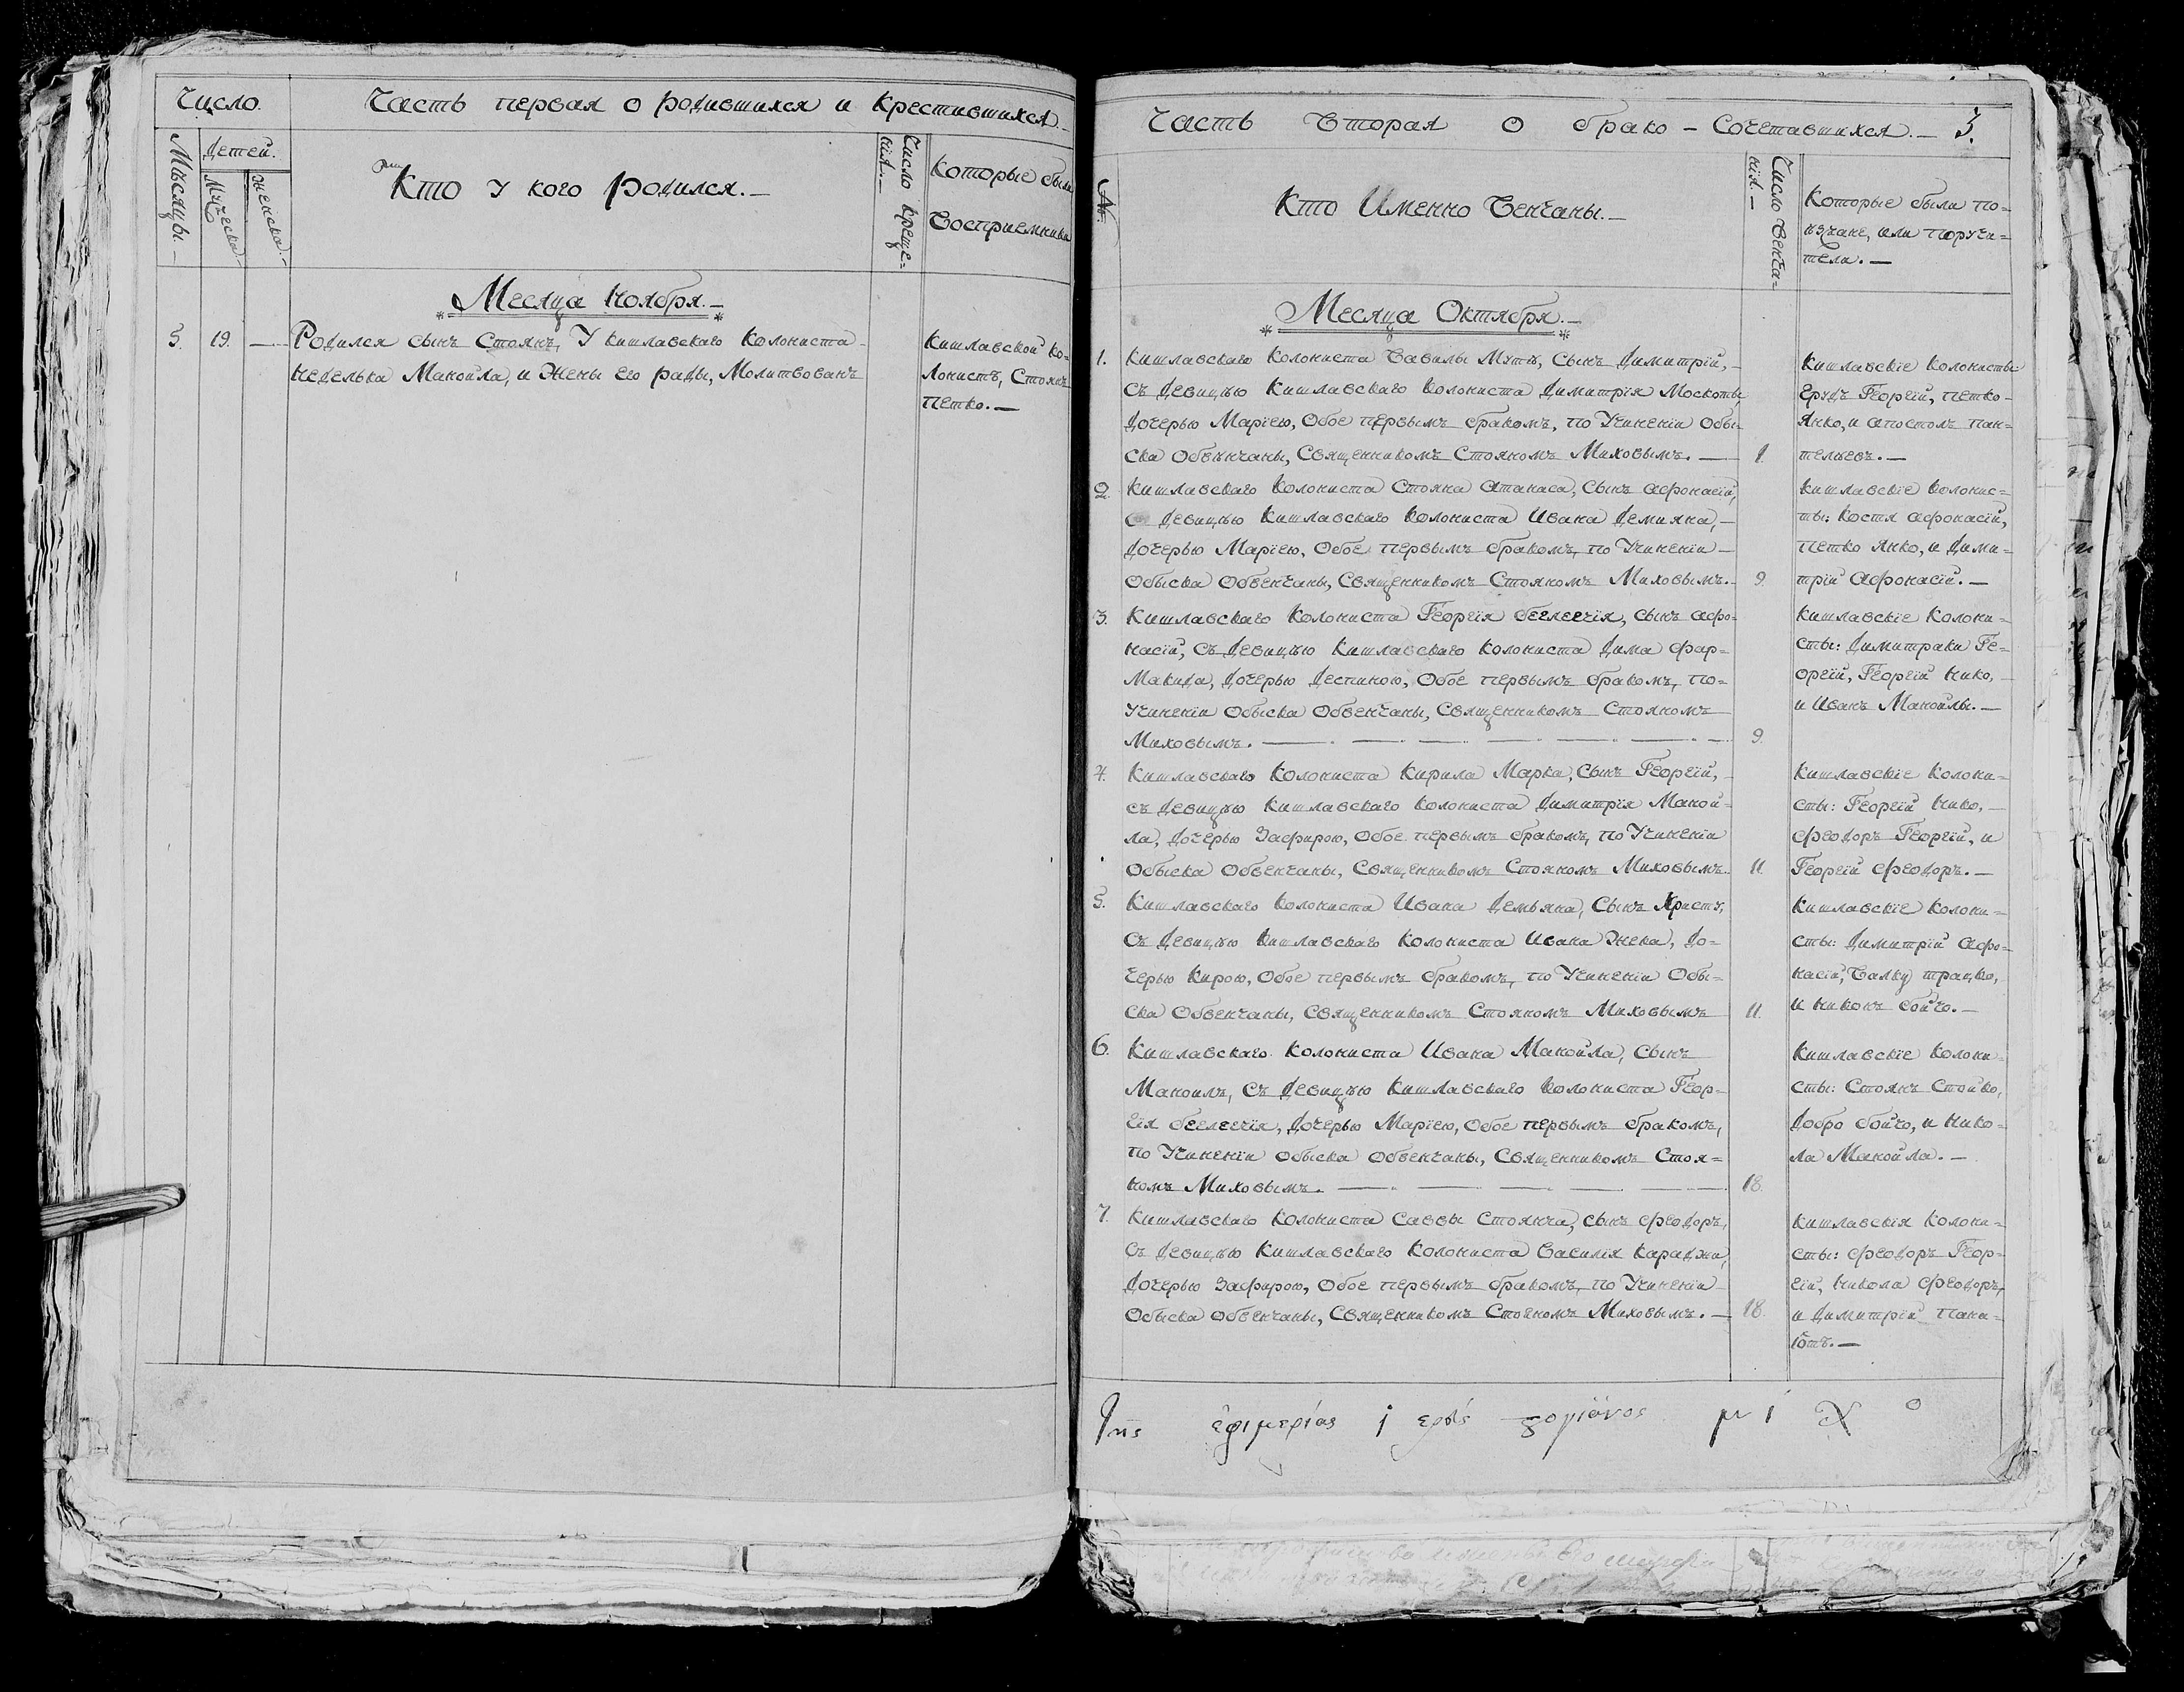 Число.
Часть первая о родившихся и крестившихся.—
Мѣсяцы.—
Детей.
Мужеска.—
Женска.—
Кто у кого родился.—
Число креще=
нія.—
Которые были
Восприемники
Месяца Ноября.—
3. 19. — Родился сынъ Стоянъ, У кишлавскаго Колониста
Неделька Манойла, и Жены его рады, Молитвованъ
Кишлавской ко=
лонистъ, Стоянъ
Петко.—
Часть Вторая О брако-Сочетавшихся.— 3.
№.
Кто Именно Венчаны.—
Число Венча=
нія.—
Которые были по=
езжане, или Поручи=
тели.—
Месяца Октября.—
1. Кишлавскаго Колониста Вавилы Мутъ, Сынъ Димитрій,—
Съ Девицѣю Кишлавскаго Колониста Димитрія Москоты,
Дочерью Маріею, Обое первымъ бракомъ, по Учиненіи Обы-
ска Обвѣнчаны, Священникомъ Стояномъ Миховымъ.— 1.
Кишлавскіе Колонисты
Ерудъ Георгій, Петко
Янко, и Апостолъ Пан=
телѣевъ.—
2. Кишлавскаго Колониста Стояна Атанаса, Сынъ Афонасій,
С Девицѣю Кишлавскаго Колониста Ивана Демияна,—
Дочерью Маріею, Обое первымъ бракомъ, по Учиненіи—
Обыска Обвенчаны, Священникомъ Стояномъ Миховымъ.— 9.
Кишлавскіе Колонис=
ты: Костя Афонасій,
Петко Янко, и Дими=
трій Афонасій.—
3. Кишлавскаго Колониста Георгія беглегчія, сынъ Афо=
насій, Съ Девицѣю Кишлавскаго Колониста Дима Фар=
макида, Дочерью Деспиною, Обое первымъ бракомъ, по=
Учиненіи Обыска Обвенчаны, Священникомъ Стояномъ
Миховымъ.— 9.
Кишлавскіе Колони=
сты: Димитраки Ге=
оргій, Георгій Нико,
и Иванъ Манойлы.—
4. Кишлавскаго Колониста Кирила Марка, Сынъ Георгій,
съ Девицѣю Кишлавскаго Колониста Димитрія Маной=
ла, Дочерью Зафирою, Обое первымъ бракомъ, по Учиненіи
Обыска Обвенчаны, Священникомъ Стояномъ Миховымъ. 11.
Кишлавскіе Колони=
сты: Георгій Нико,—
Феодоръ Георгій, и
Георгій Феодоръ.—
5. Кишлавскаго Колониста Ивана Демьяна, Сынъ Христу,
Съ Девицѣю Кишлавскаго Колониста Ивана Жека, До=
черью Кирою, Обое первымъ бракомъ, по Учиненіи Обы=
ска Обвенчаны, Священникомъ Стояномъ Миховымъ 11.
Кишлавскіе Колони=
сты: Димитрій Афо=
насій, Валку трацко,
и Никонъ бойчо.—
6. Кишлавскаго Колониста Ивана Манойла, Сынъ
Маноилъ, Съ Девицѣю Кишлавскаго Колониста Геор=
гія беглегчія, Дочерью Маріею, Обое первымъ бракомъ,
по Учиненіи Обыска Обвенчаны, Священникомъ Стоя=
номъ Миховымъ.— 18.
Кишлавскіе Колони=
сты: Стоянъ Стойко,
Добро бойчо, и Нико=
ла Манойла.—
7. Кишлавскаго Колониста Саввы Стоянча, Сынъ Феодоръ,
Съ Девицѣю Кишлавскаго Колониста Василія Караджи,
Дочерью Зафирою, Обое первымъ бракомъ, по Учиненіи
Обыска обвенчаны, Священникомъ Стояномъ Миховымъ.— 18.
Кишлавскія Колони=
сты: Феодоръ Геор=
гій, Никола Феодоръ,
и Димитрій Пана=
іотъ.—
ἐφιμερίας